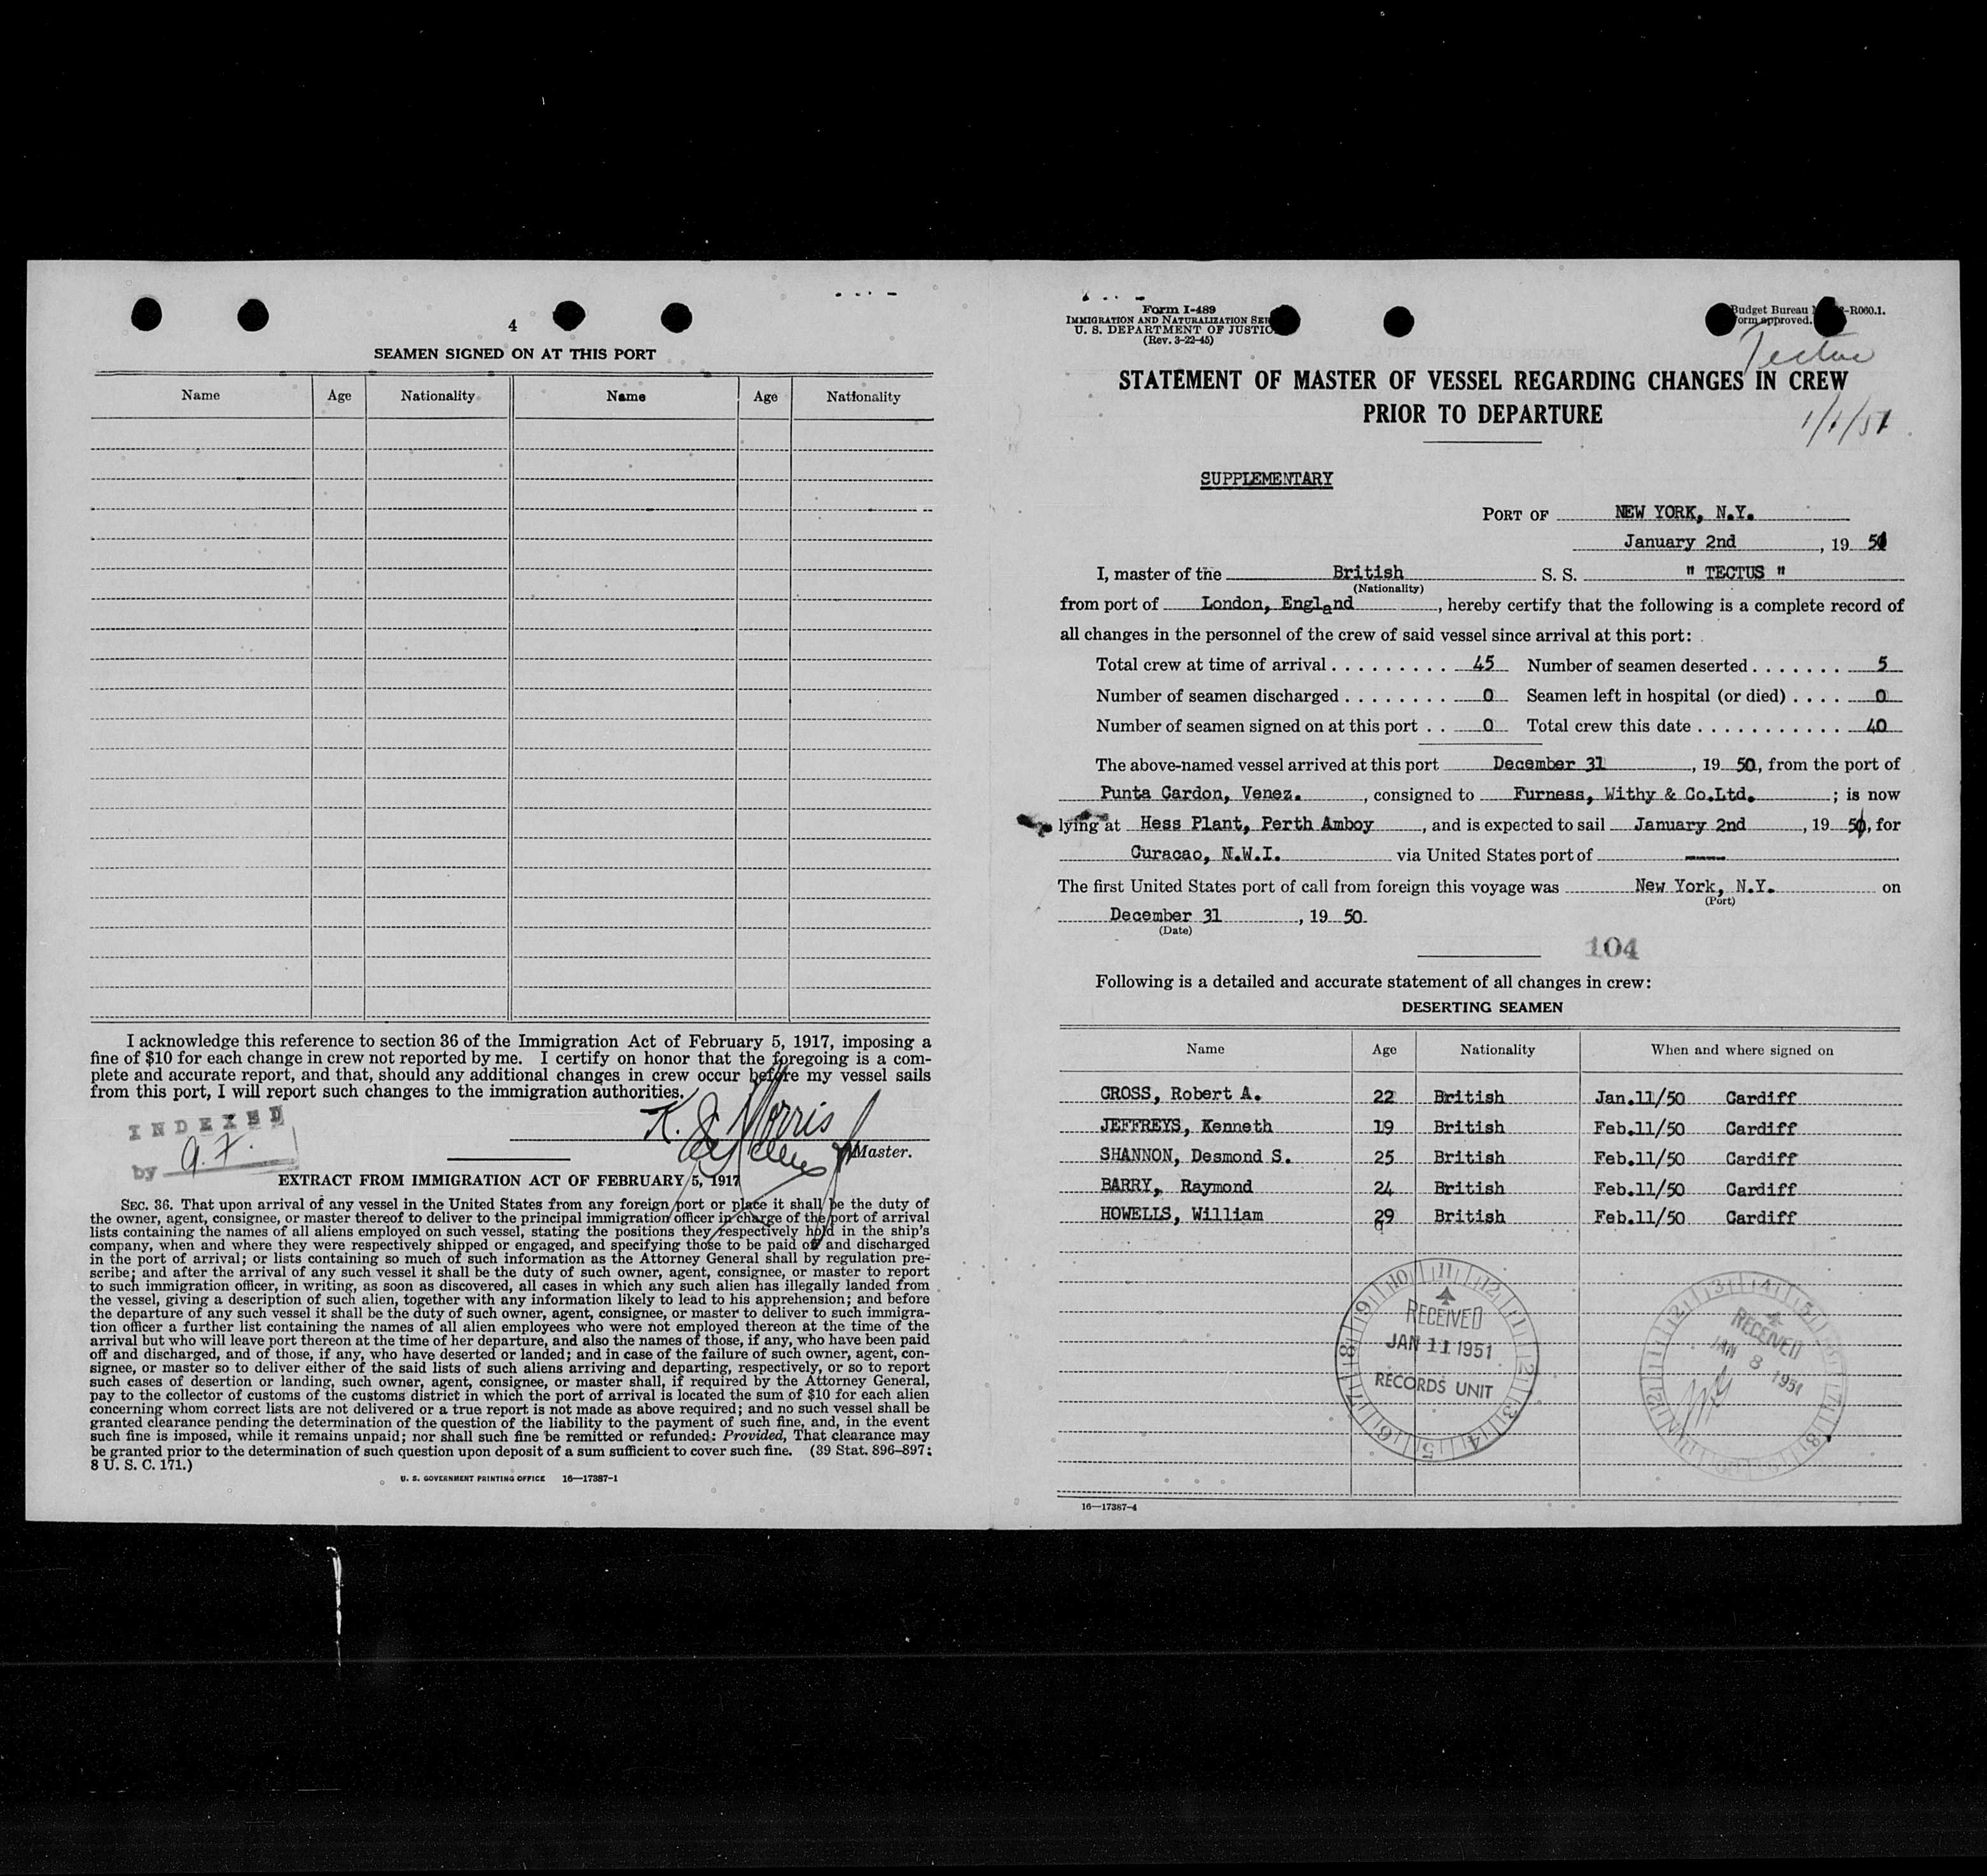 4
SEAMEN SIGNED ON AT THIS PORT
Name Age Nationality Name Age Nationality
I acknowledge this reference to section 36 of the Immigration Act of February 5, 1917, imposing a
fine of $10 for each change in crew not reported by me. I certify on honor that the foregoing is a com-
plete and accurate report, and that, should any additional changes in crew occur before my vessel sails
from this port, I will report such changes to the immigration authorities.
INDEXED
by a.F.
K. Morris
Master.
EXTRACT FROM IMMIGRATION ACT OF FEBRUARY 5, 1917
SEC. 36. That upon arrival of any vessel in the United States from any foreign port or place it shall be the duty of
the owner, agent, consignee, or master thereof to deliver to the principal immigration officer in charge of the port of arrival
lists containing the names of all aliens employed on such vessel, stating the positions they respectively hold in the ship's
company, when and where they were respectively shipped or engaged, and specifying those to be paid off and discharged
in the port of arrival; or lists containing so much of such information as the Attorney General shall by regulation pre-
scribe; and after the arrival of any such vessel it shall be the duty of such owner, agent, consignee, or master to report
to such immigration officer, in writing, as soon as discovered, all cases in which any such alien has illegally landed from
the vessel, giving a description of such alien, together with any information likely to lead to his apprehension; and before
the departure of any such vessel it shall be the duty of such owner, agent, consignee, or master to deliver to such immigra-
tion officer a further list containing the names of all alien employees who were not employed thereon at the time of the
arrival but who will leave port thereon at the time of her departure, and also the names of those, if any, who have been paid
off and discharged, and of those, if any, who have deserted or landed; and in case of the failure of such owner, agent, con-
signee, or master so to deliver either of the said lists of such aliens arriving and departing, respectively, or so to report
such cases of desertion or landing, such owner, agent, consignee, or master shall, if required by the Attorney General,
pay to the collector of customs of the customs district in which the port of arrival is located the sum of $10 for each alien
concerning whom correct lists are not delivered or a true report is not made as above required; and no such vessel shall be
granted clearance pending the determination of the question of the liability to the payment of such fine, and, in the event
such fine is imposed, while it remains unpaid; nor shall such fine be remitted or refunded: Provided, That clearance may
be granted prior to the determination of such question upon deposit of a sum sufficient to cover such fine. (39 Stat. 896-897;
8 U. S. C. 171.)
U. S. GOVERNMENT PRINTING OFFICE 16—17387-1
Form I-489
IMMIGRATION AND NATURALIZATION SER
U. S. DEPARTMENT OF JUSTIC
(Rev. 3-22-45)
Budget Bureau -R060.1.
orm approved.
Tectus
STATEMENT OF MASTER OF VESSEL REGARDING CHANGES IN CREW
PRIOR TO DEPARTURE
1/1/51
SUPPLEMENTARY
PORT OF NEW YORK, N.Y.
January 2nd, 19 51
I, master of the British S. S. " TECTUS "
(Nationality)
from port of London, England, hereby certify that the following is a complete record of
all changes in the personnel of the crew of said vessel since arrival at this port:
Total crew at time of arrival . . . . . . . . . 45 Number of seamen deserted . . . . . . . 5
Number of seamen discharged . . . . . . . . 0 Seamen left in hospital (or died) . . . . 0
Number of seamen signed on at this port . . 0 Total crew this date . . . . . . . . . . . 40
The above-named vessel arrived at this port December 31, 19 50, from the port of
Punta Cardon, Venez., consigned to Furness, Withy & Co.Ltd.; is now
lying at Hess Plant, Perth Amboy, and is expected to sail January 2nd, 19 51, for
Curacao, N.W.I. via United States port of ----
The first United States port of call from foreign this voyage was New York, N.Y. on
(Port)
December 31, 19 50.
(Date)
104
Following is a detailed and accurate statement of all changes in crew:
DESERTING SEAMEN
Name Age Nationality When and where signed on
CROSS, Robert A. 22 British Jan.11/50 Cardiff
JEFFREYS, Kenneth 19 British Feb.11/50 Cardiff
SHANNON, Desmond S. 25 British Feb.11/50 Cardiff
BARRY, Raymond 24 British Feb.11/50 Cardiff
HOWELLS, William 29 British Feb.11/50 Cardiff
RECEIVED
JAN 11 1951
RECORDS UNIT
RECEIVED
JAN 8 1951
16—17387-4